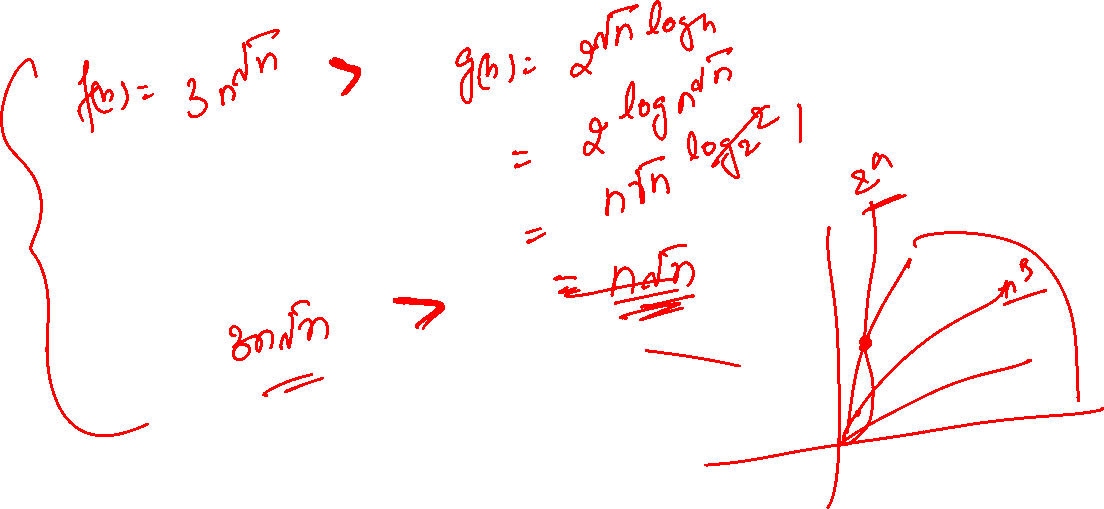 f(n) = 3 n^√n > g(n) = 2^√n log n
= 2^log n^√n
= n^√n log₂2 1
3n√n > = n√n
2^n
n^3